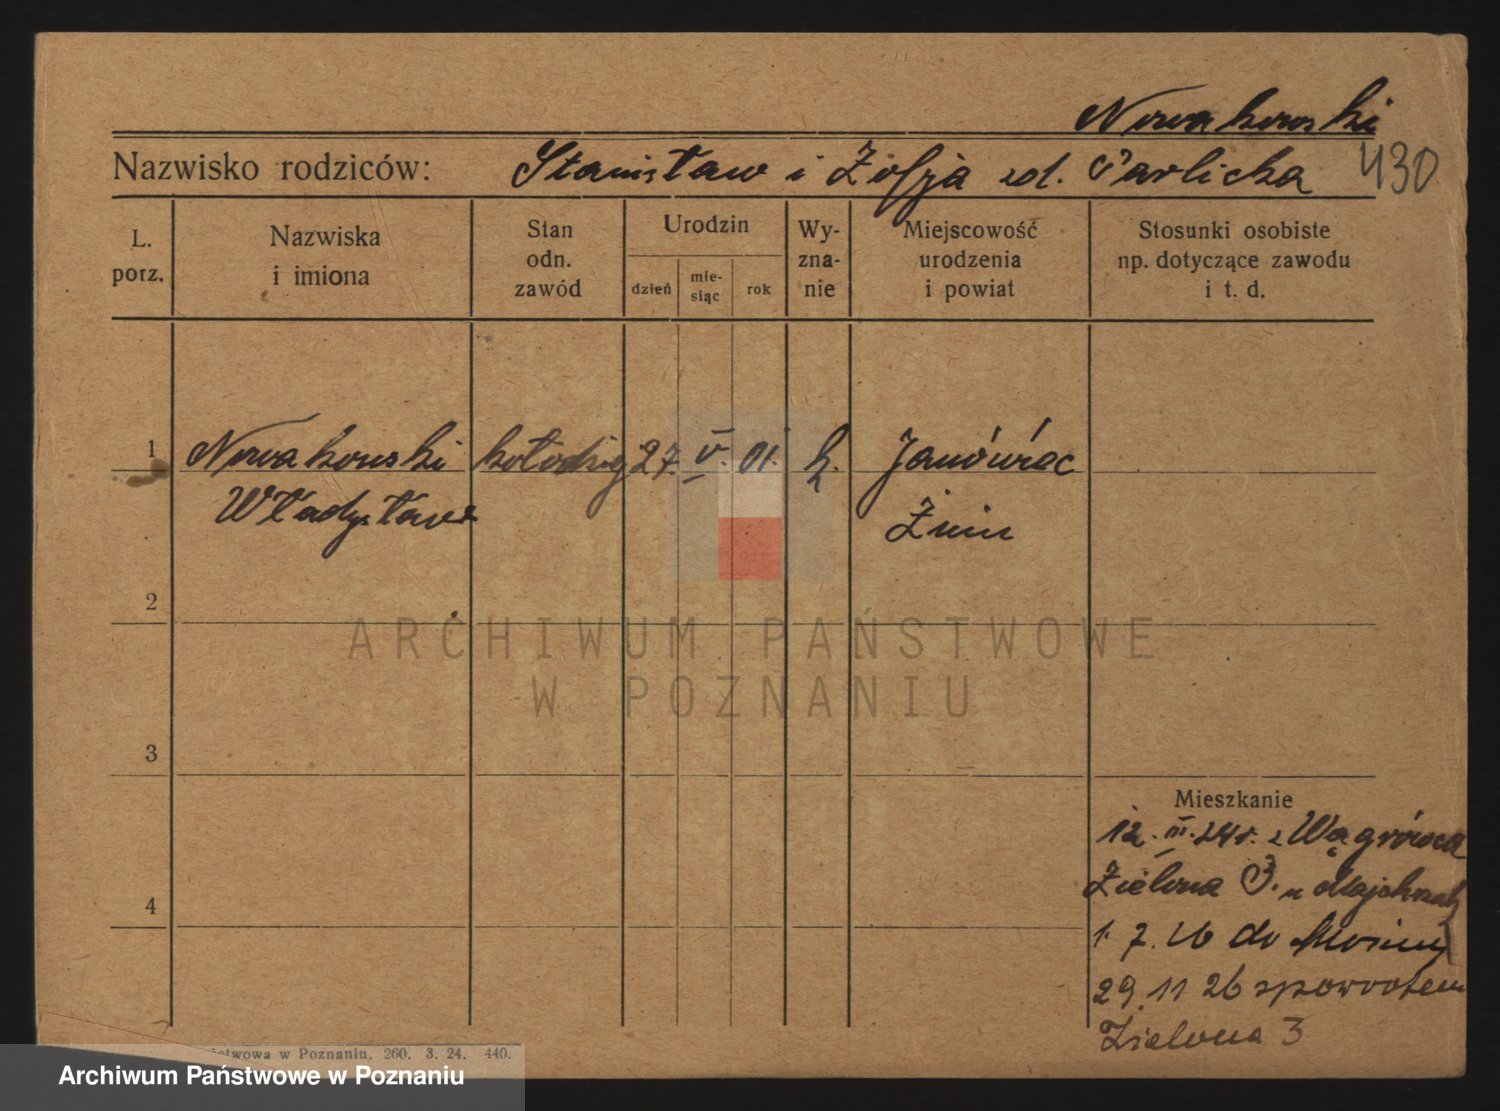 Nowakowski
Nazwisko rodziców: Stanisław i Zofja zd. Parlicka 430
L. porz.
Nazwiska i imiona
Stan odn. zawód
Urodzin
dzień
mie- siąc
rok
Wy- zna- nie
Miejscowość urodzenia i powiat
Stosunki osobiste np. dotyczące zawodu i t. d.
1 Nowakowski kołodziej 27. V. 01. k. Janówiec
Władysław Żnin
2
ARCHIWUM PAŃSTWOWE
W POZNANIU
3
Mieszkanie
12. III. 24 r. z Wągrówca
Zielona 3. u
4
1. 7. 26 do Mosiny
29 11 26 spowrotem
Zielona 3
w Poznaniu, 260. 3. 24. 440.
Archiwum Państwowe w Poznaniu